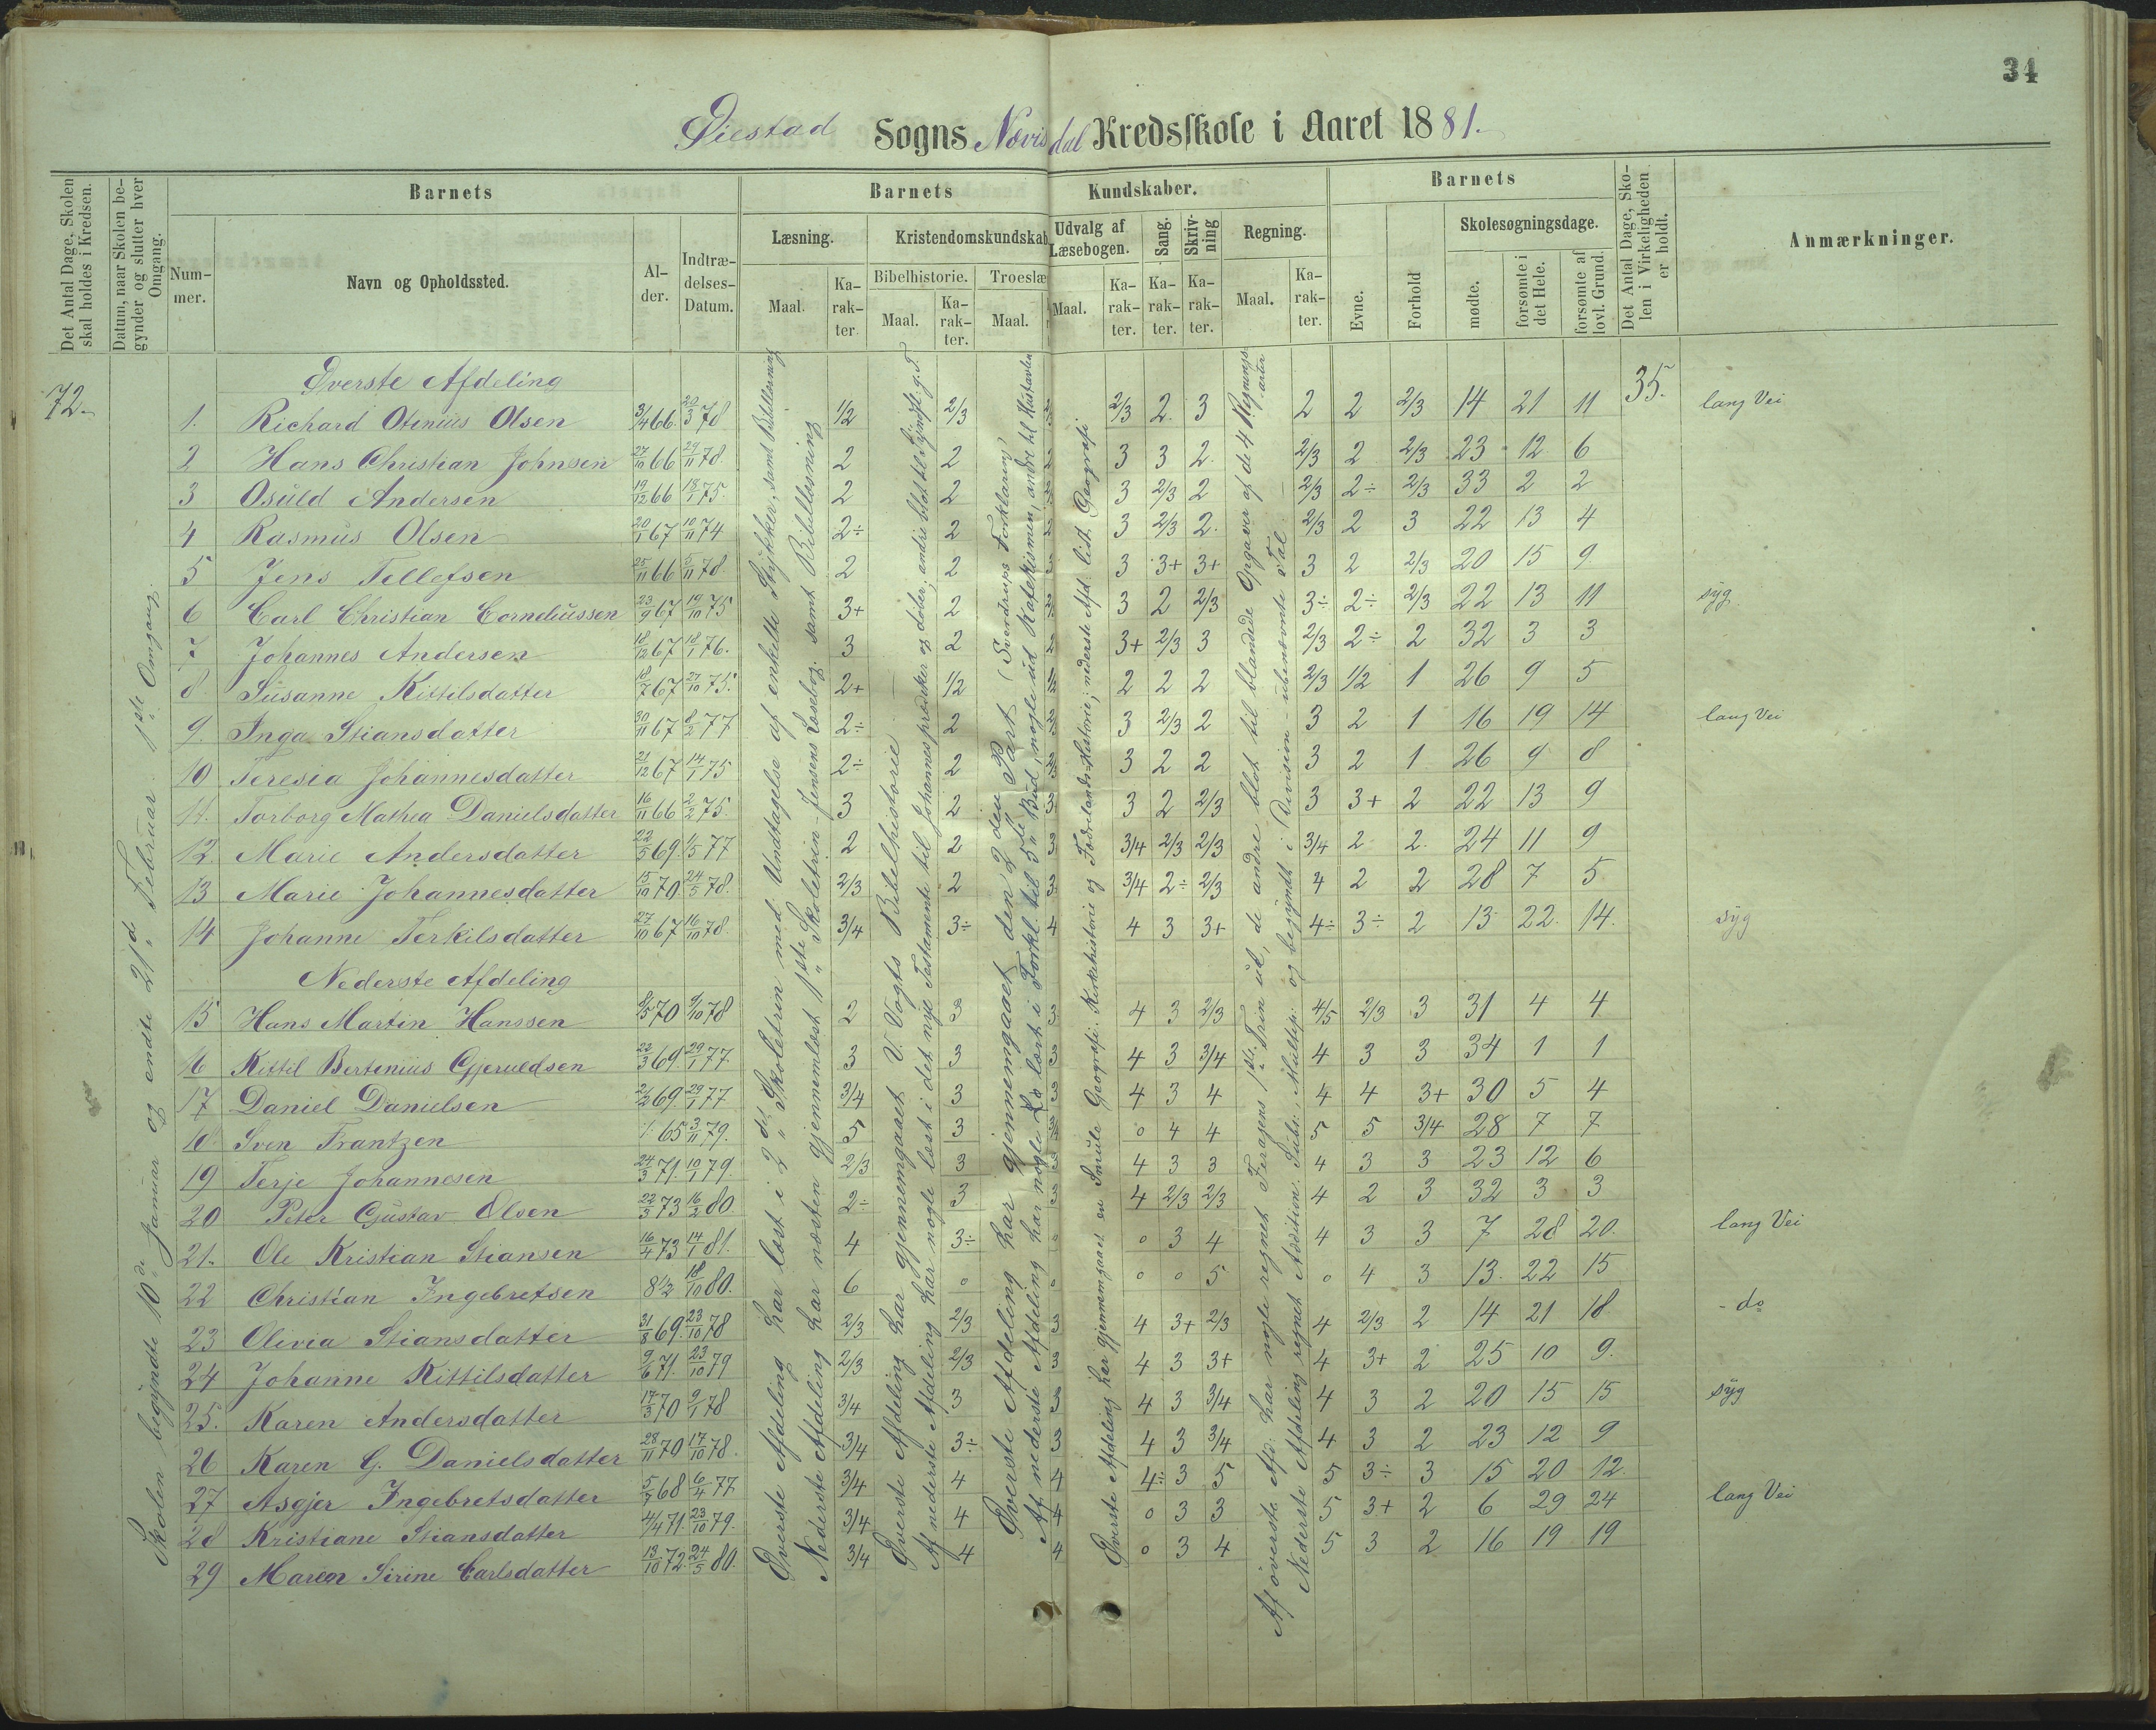 34
Øiestad Sogns Nævisdal Kredsskole i Aaret 1881.
Det Antal Dage, Skolen skal holdes i Kredsen.
Datum, naar Skolen begynder og slutter hver Omgang.
Barnets
Barnets Kundskaber.
Barnets
Det Antal Dage, Skolen i Virkeligheden er holdt.
Anmærkninger.
Nummer.
Navn og Opholdssted.
Alder.
Indtrædelses-Datum.
Læsning.
Kristendomskundskab
Udvalg af Læsebogen.
Sang.
Skrivning
Regning.
Evne.
Forhold
Skolesøgningsdage.
Bibelhistorie.
Troeslæ
Maal.
Karakter.
Maal.
Karakter.
Maal.
Maal.
Karakter.
Karakter.
Karakter.
Maal.
Karakter.
mødte.
forsømte i det Hele.
forsømte af lovl. Grund.
72.
Skolen begyndte 10de Januar og endte 21d Februar 1ste Omgang.
Øverste Afdeling
35.
1. Richard Otinius Olsen 3/4 66. 20/3 78 1/2 2/3 2/3 2. 3 2 2 2/3 14 21 11 lang Vei
2 Hans Christian Johnsen 27/10 66 29/11 78. 2 2 3 3 2. 2/3 2 2/3 23 12 6
3 Osuld Andersen 19/12 66 18/1 75. 2 2 3 2/3 2 2/3 2÷ 2/3 33 2 2
4 Rasmus Olsen 20/1 67 10/11 74 2÷ 2 3 2/3 2. 2/3 2 3 22 13 4
5 Jens Tellefsen 25/11 66 5/11 78. 2 2 3 3+ 3+ 3 2 2/3 20 15 9.
6 Carl Christian Corneliussen 23/9 67 19/10 75 3+ 2 3 2 2/3 3÷ 2÷ 2/3 22 13 11 syg.
7 Johannes Andersen 18/12 67 18/1 76. 3 2 2 3+ 2/3 3 2/3 2÷ 2 32 3 3
8 Susanne Kittilsdatter 18/7 67 27/10 75. 2+ 1/2 1/2 2 2 2 2/3 1/2 1 26 9 5
9. Inga Stiansdatter 30/11 67 8/2 77 2÷ 2 3 2/3 2 3 2 1 16 19 14 lang Vei
10 Teresia Johannesdatter 21/12 67 14/1 75 2÷ 2 3 2 2 3 2 1 26 9 8
11. Torborg Mathea Danielsdatter 16/11 66 2/2 75. 3 2 3 3 2 2/3 3 3+ 2 22 13 9
12. Marie Andersdatter 22/5 69. 1/5 77 2 2 3 3/4 2/3 2/3 3/4 2 2. 24 11 9
13 Marie Johannesdatter 15/10 70 24/5 78. 2/3 2 3 3/4 2÷ 2/3 4 2 2 28 7 5
14 Johanne Terkilsdatter 27/10 67 16/10 78. 3/4 3÷ 4 4 3 3+ 4÷ 3÷ 2 13 22. 14. syg
Nederste Afdeling
15 Hans Martin Hanssen 8/5 70 9/10 78 2 3 3 4 3 2/3 4/5 2/3 3 31 4 4
16 Kittil Bertinius Gjeruldsen 22/3 69. 29/1 77 3 3 3 4 3 3/4 4 3 3 34 1 1
17 Daniel Danielsen 21/2 69. 29/1 77 3/4 3 3 4 3 4 4 4 3+ 30 5 4
18 Sven Frantzen 1. 65 3/11 79. 5 3 3/4 0 4 4 5 5 3/4 28 7 7
19 Terje Johannesen 24/3 71. 10/1 79. 2/3 3 3 4 3 3 4 3 3 23 12 6
20 Peter Gustav Olsen 22/3 73 16/2 80. 2÷ 3 3 4 2/3 2/3 4 2 3 32 3 3
21. Ole Kristian Stiansen 16/4 73 14/1 81. 4 3÷ 0 0 3 4 4 3 3 7 28 20. lang Vei
22 Christian Ingebretsen 8 1/2 18/10 80. 6 0 0 0 0 5 0 4 3 13. 22 15
23 Olivia Stiansdatter 31/8 69. 23/10 78 2/3 2/3 3 4 3+ 2/3 4 2/3 2 14 21 18. - do
24 Johanne Kittilsdatter 9/6 71. 23/10 79 2/3 2/3 3 4 3 3+ 4 3+ 2 25 10 9.
25. Karen Andersdatter 17/3 70 9/1 78 3/4 3 3 4 3 3/4 4 3 2 20 15 15 syg
26 Karen G. Danielsdatter 28/11 70 17/10 78. 3/4 3÷ 3 4 3 3/4 4 3 2 23 12 9
27 Asgjer Ingebretsdatter 5/7 68 6/4 77 3/4 4 4 4÷ 3 5 5 3÷ 3 15 20 12.
28 Kristiane Stiansdatter 4/4 71. 23/10 79. 3/4 4 4 0 3 3 5 3+ 2 6 29 24 lang Vei
29 Maren Sirine Carlsdatter 13/10 72. 24/5 80. 3/4 4 4 0 3 4 5 3 2 16 19 19
Øverste Afdeling har læst i 2det Skoletrin med Undtagelse af enkelte Stykker, samt Bibellæsning
Nederste Afdeling har næsten gjennemlæst 1ste Skoletrin. Jensens Læsebog. samt Bibellæsning
Øverste Afdeling har gjennemgaaet V. Vogts Bibelhistorie
Af nederste Afdeling har nogle læst i det nye Testamente til Johannes prædiker og døber, andre blot til
Øverste Afdeling har gjennemgaaet den 2den Part (Sverdrups Forklaring)
Af nederste Afdeling har nogle læst i Forkl. til 5te Bud, nogle ud Katekismen, andre til Hustavlen
Øverste Afdeling har gjennemgaaet en Smule Geografi, Kirkehistorie og Fædrelands-Historie; nederste Afd. lidt Geografi
Af øverste Afd. har nogle regnet Feragens 1ste Trin ud, de andre blot til blandede Opgaver af de 4 Regningsarter
Nederste Afdeling regnet Addition, Subtr., Multipl. og begyndt i Division - ubenævnte Tal.